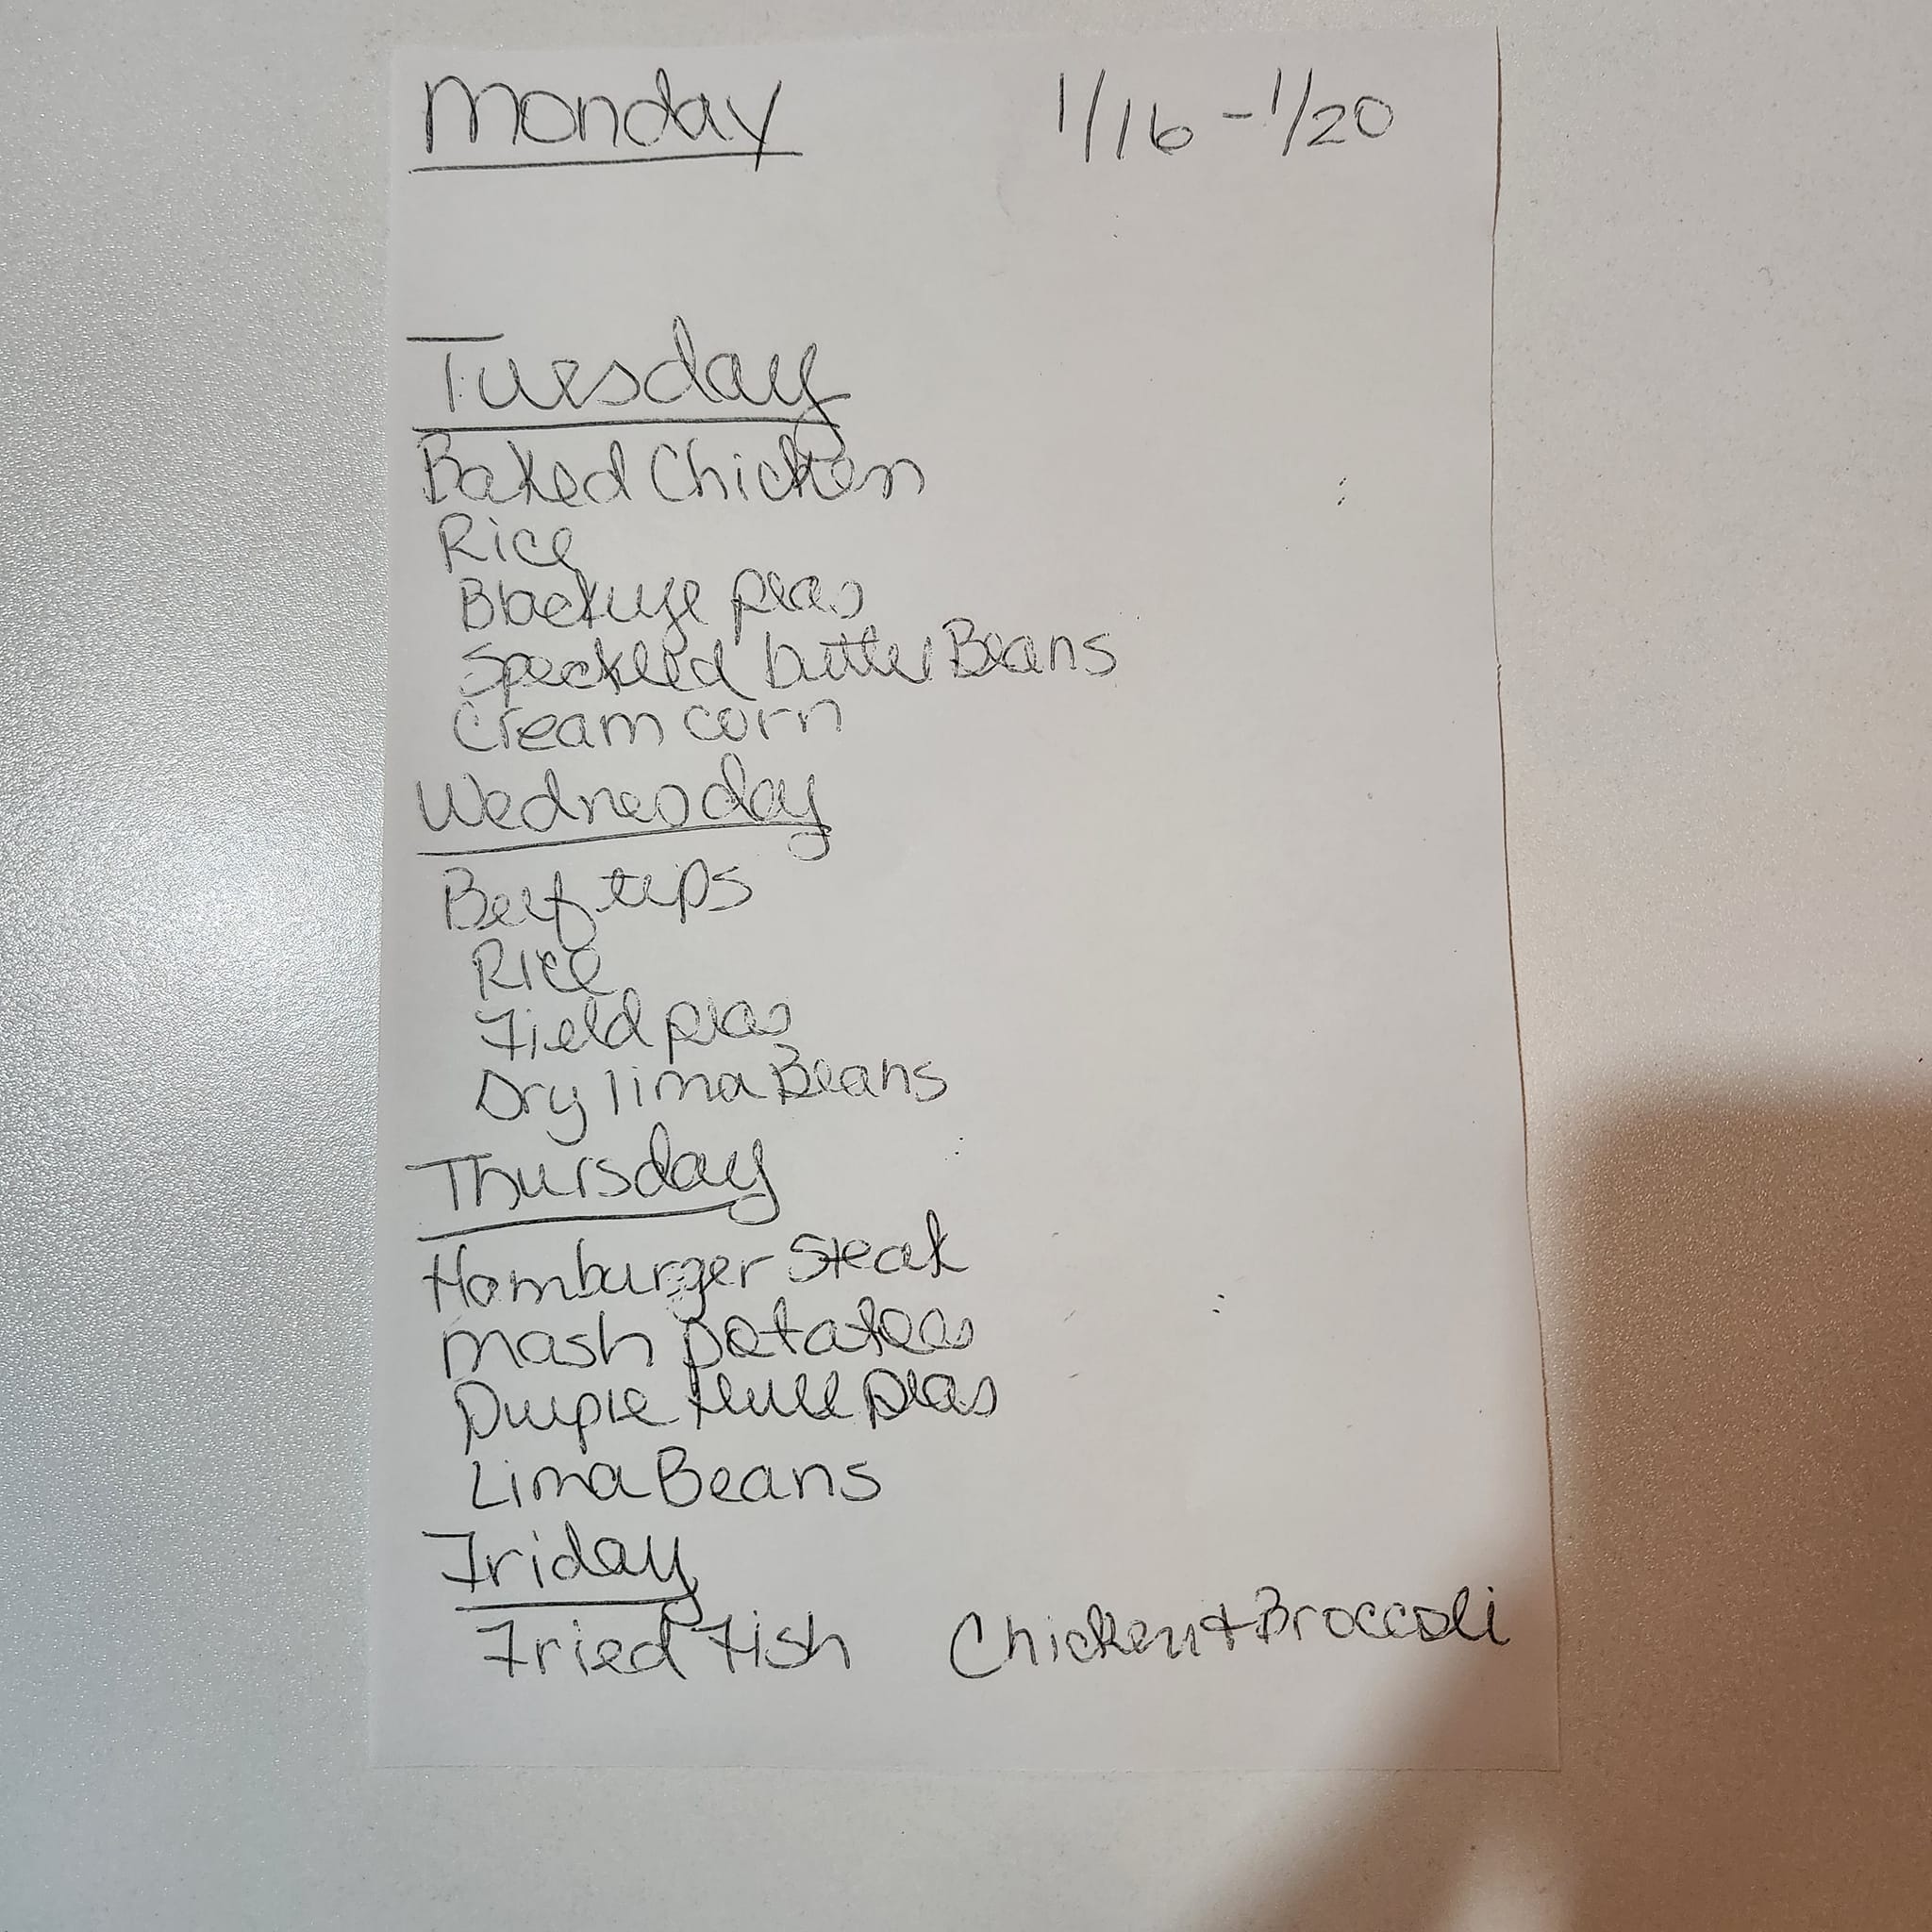 Monday 1/16 - 1/20
Tuesday
Baked Chicken
Rice
Blackeye peas
Speckled butter Beans
Cream corn
Wednesday
Beef tips
Rice
Field peas
Dry lima Beans
Thursday
Hamburger Steak
mash potatoes
Purple Hull peas
Lima Beans
Friday
Fried Fish Chicken + Broccoli